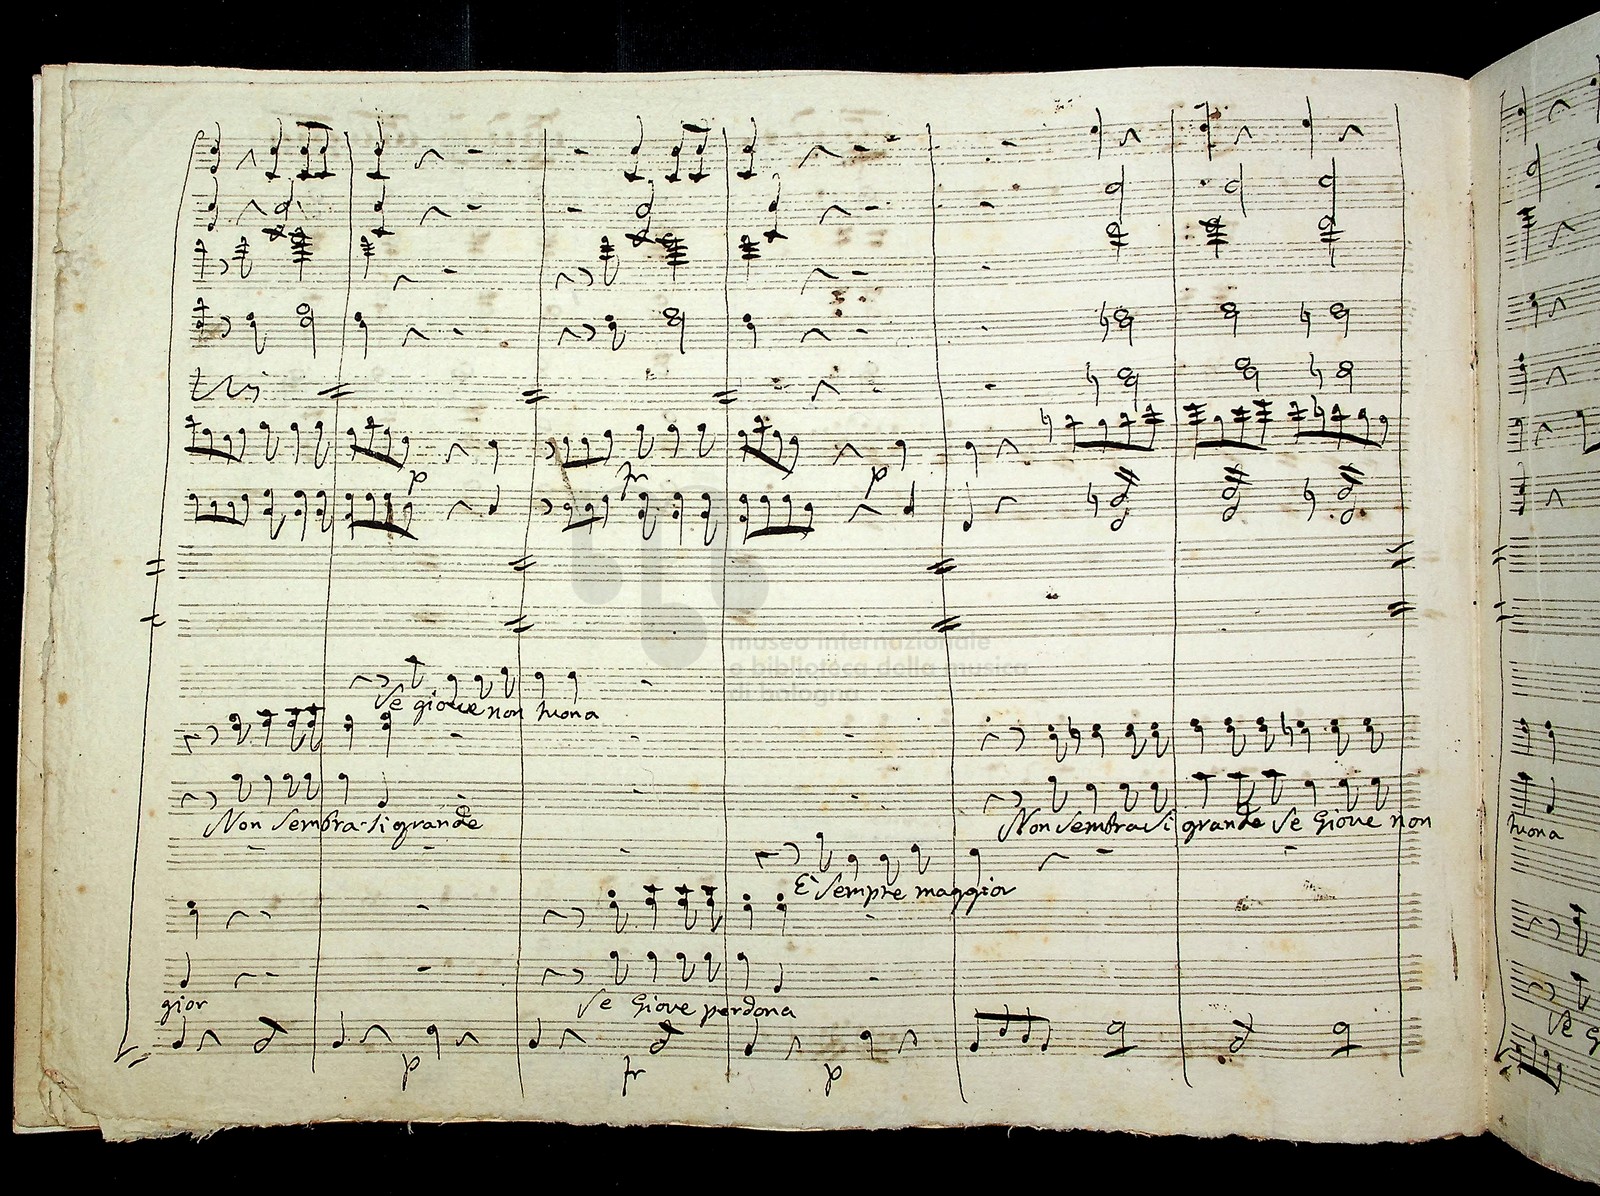 p p
fr
museo internazionale
e biblioteca della musica
di bologna
Se giove non tuona
Non sembra si grande
Non sembra si grande Se Giove non
tuona
E' sempre maggior
gior
Se Giove perdona
Se G
p fr p